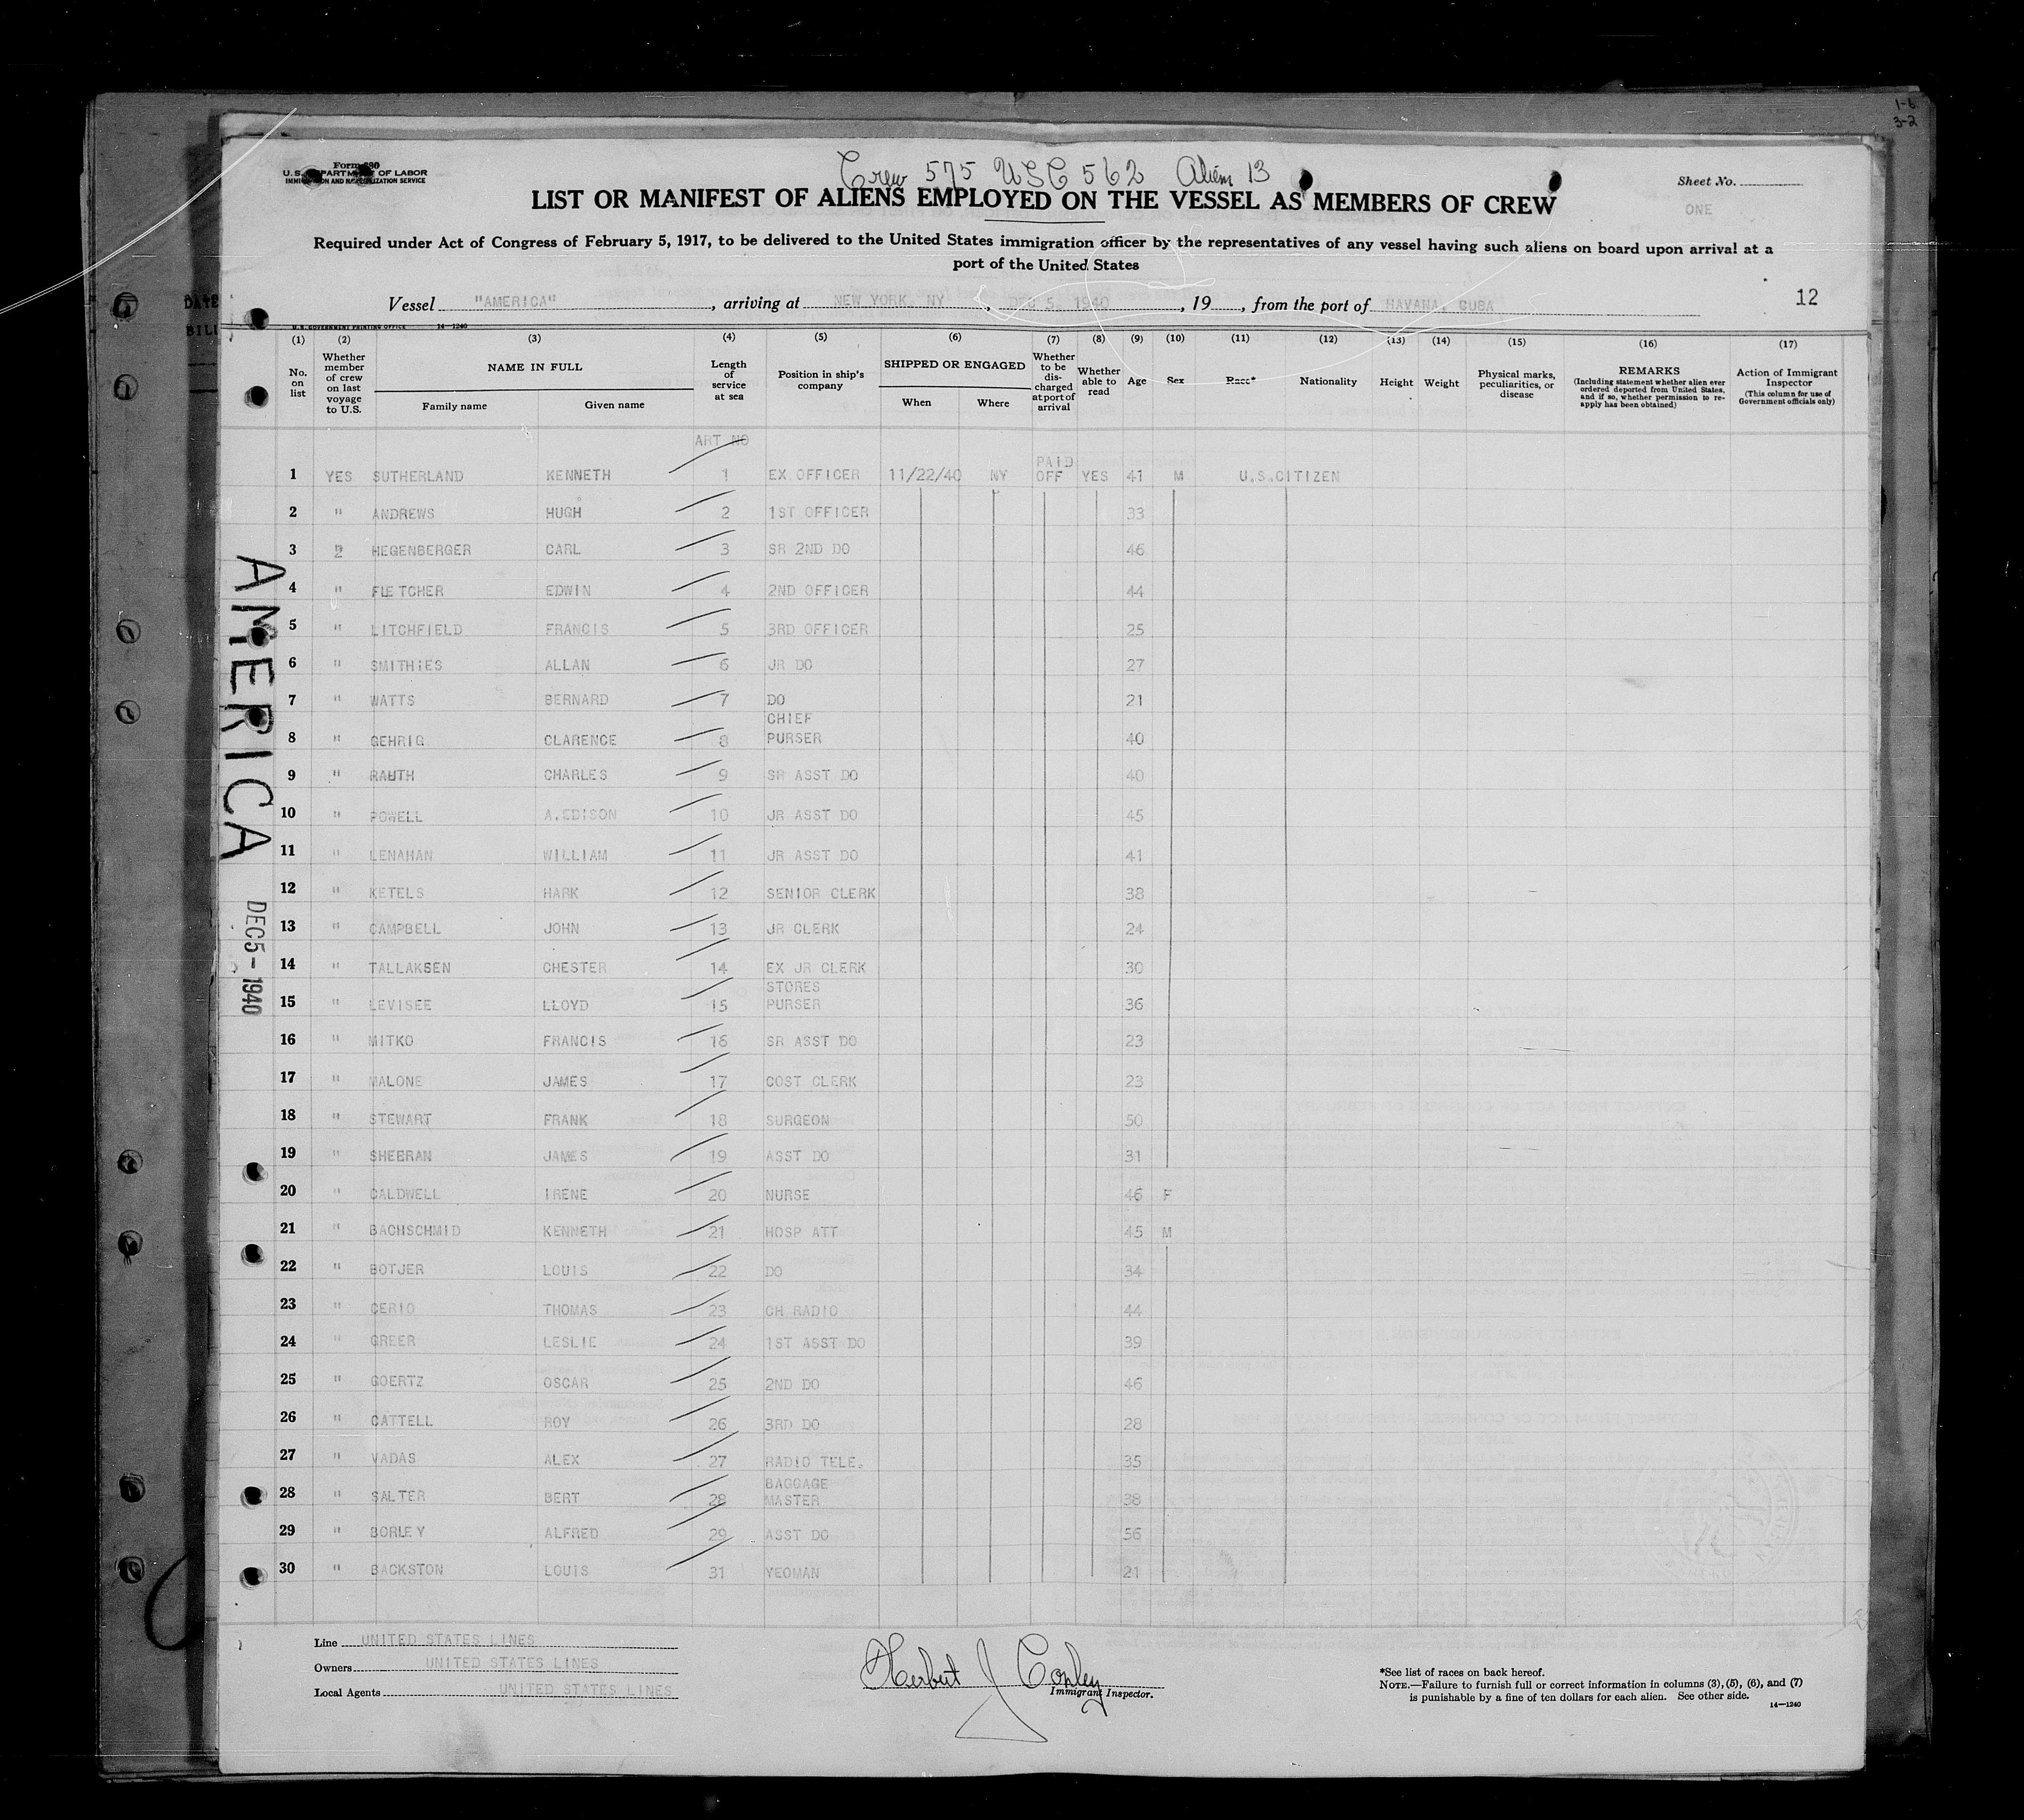 1-6
3-2
Crew 575 USC 562 Alien 13
U.S. DEPARTMENT OF LABOR
IMMIGRATION AND NATURALIZATION SERVICE
Sheet No.
ONE
LIST OR MANIFEST OF ALIENS EMPLOYED ON THE VESSEL AS MEMBERS OF CREW
Required under Act of Congress of February 5, 1917, to be delivered to the United States immigration officer by the representatives of any vessel having such aliens on board upon arrival at a
port of the United States
Vessel "AMERICA", arriving at NEW YORK. NY, DEC 5, 1940, 19, from the port of HAVANA, CUBA
12
DATE
BILL
U. S. GOVERNMENT PRINTING OFFICE 14-1240
(1) No. on list
(2) Whether member of crew on last voyage to U.S.
(3) NAME IN FULL Family name Given name
(4) Length of service at sea
(5) Position in ship's company
(6) SHIPPED OR ENGAGED When Where
(7) Whether to be discharged at port of arrival
(8) Whether able to read
(9) Age
(10) Sex
(11) Race*
(12) Nationality
(13) Height
(14) Weight
(15) Physical marks, peculiarities, or disease
(16) REMARKS (Including statement whether alien ever ordered deported from United States, and if so, whether permission to reapply has been obtained)
(17) Action of Immigrant Inspector (This column for use of Government officials only)
ART NO
1 YES SUTHERLAND KENNETH 1 EX.OFFICER 11/22/40 NY PAID OFF YES 41 M U.S.CITIZEN
2 " ANDREWS HUGH 2 1ST OFFICER 33
3 2 HEGENBERGER CARL 3 SR 2ND DO 46
4 " FLETCHER EDWIN 4 2ND OFFICER 44
5 " LITCHFIELD FRANCIS 5 3RD OFFICER 25
6 " SMITHIES ALLAN 6 JR DO 27
7 " WATTS BERNARD 7 DO 21
8 " GEHRIG CLARENCE 8 CHIEF PURSER 40
9 " RAUTH CHARLES 9 SR ASST DO 40
10 " POWELL A.EDISON 10 JR ASST DO 45
11 " LENAHAN WILLIAM 11 JR ASST DO 41
12 " KETELS HARK 12 SENIOR CLERK 38
13 " CAMPBELL JOHN 13 JR CLERK 24
14 " TALLAKSEN CHESTER 14 EX JR CLERK 30
15 " LEVISEE LLOYD 15 STORES PURSER 36
16 " MITKO FRANCIS 16 SR ASST DO 23
17 " MALONE JAMES 17 COST CLERK 23
18 " STEWART FRANK 18 SURGEON 50
19 " SHEERAN JAMES 19 ASST DO 31
20 " CALDWELL IRENE 20 NURSE 46 F
21 " BACHSCHMID KENNETH 21 HOSP ATT 45 M
22 " BOTJER LOUIS 22 DO 34
23 " CERIO THOMAS 23 CH RADIO 44
24 " GREER LESLIE 24 1ST ASST DO 39
25 " GOERTZ OSCAR 25 2ND DO 46
26 " CATTELL ROY 26 3RD DO 28
27 " VADAS ALEX 27 RADIO TELE. 35
28 " SALTER BERT 28 BAGGAGE MASTER 38
29 " BORLEY ALFRED 29 ASST DO 56
30 " BACKSTON LOUIS 31 YEOMAN 21
AMERICA
DEC 5 - 1940
Line UNITED STATES LINES
Owners UNITED STATES LINES
Local Agents UNITED STATES LINES
Herbert J Copley
Immigrant Inspector.
*See list of races on back hereof.
NOTE.—Failure to furnish full or correct information in columns (3), (5), (6), and (7)
is punishable by a fine of ten dollars for each alien. See other side.
14-1240